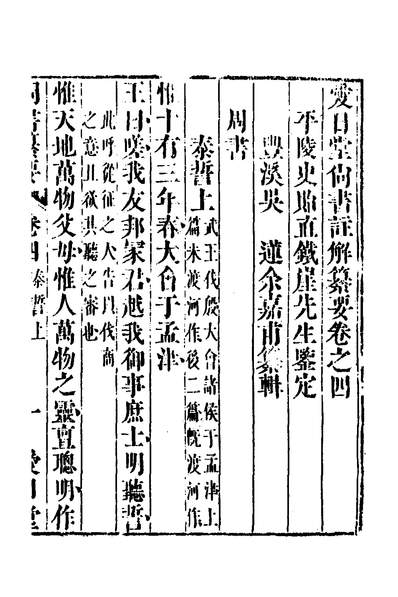 愛日堂尚書註解纂要卷之四
平陵史貽直鐵崖先生鑒定
豐溪吳 蓮余嘉甫纂輯
周書
泰誓上
武王伐殷大會諸侯于孟津上
篇未渡河作後二篇旣渡河作
惟十有三年春大會于孟津
王曰嗟我友邦冢君越我御事庶士明聽誓
此呼從征之人告以伐商
之意且欲其聽之審也
惟天地萬物父母惟人萬物之靈亶聰明作
尚書纂要 卷四 泰誓上 一 愛日堂